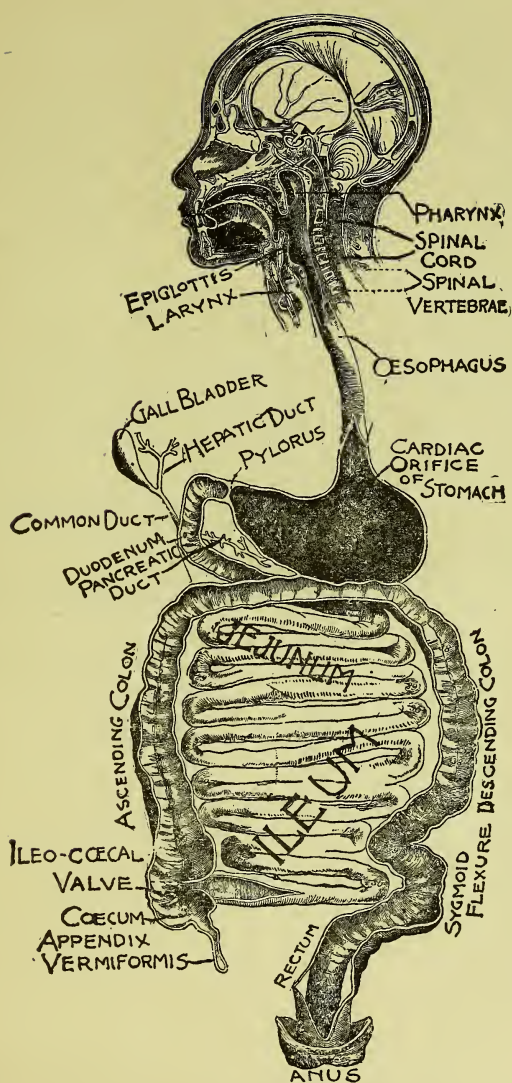 PHARYNX
SPINAL
CORD
SPINAL
VERTEBRAE
EPIGLOTTIS
LARYNX
ŒSOPHAGUS
GALL BLADDER
HEPATIC DUCT
PYLORUS
CARDIAC
ORIFICE
OF
STOMACH
COMMON DUCT
DUODENUM
PANCREATIC
DUCT
JEJUNUM
ILEUM
ASCENDING COLON
DESCENDING COLON
SYGMOID
FLEXURE
ILEO-CŒCAL
VALVE
CŒCUM
APPENDIX
VERMIFORMIS
RECTUM
ANUS